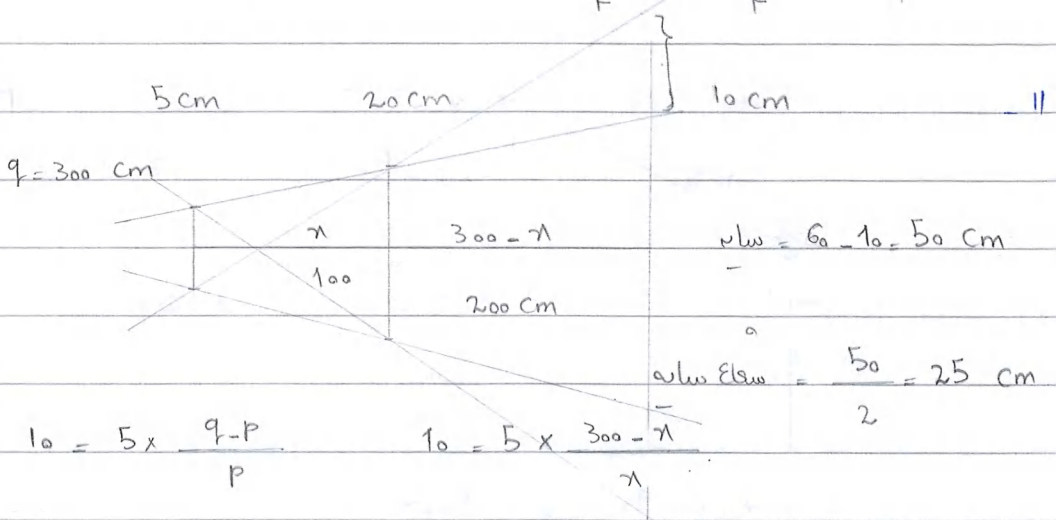 5 cm 20 cm 10 cm 11
q = 300 cm
x 300 - x سایه = 60 - 10 = 50 cm
100
200 cm
شعاع سایه = 50 / 2 = 25 cm
10 = 5 × (q - p) / p 10 = 5 × (300 - x) / x